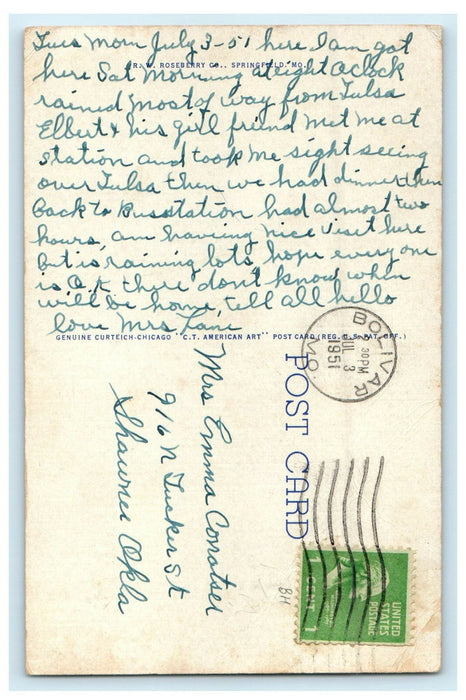 Tues Morn July 3-51 here I am got
R. W. ROSEBERRY CO., SPRINGFIELD, MO.
here Sat Morning at eight Oclock
rained most of way from Tulsa
Elbert & his girl friend met me at
station and took me sight seeing
over Tulsa then we had dinner then
back to Busstation had almost two
hours, am having nice visit here
but is raining lots, hope every one
is O.K there don't know when
will be home, tell all hello
love Mrs Lane
GENUINE CURTEICH-CHICAGO "C.T. AMERICAN ART" POST CARD (REG. U.S. PAT. OFF.)
BOLIVAR
30 PM
JUL 3
1951
MO.
POST CARD
Mrs Emma
916 N Tucker St
Shawnee Okla
BH
UNITED
STATES
POSTAGE
1 CENT 1